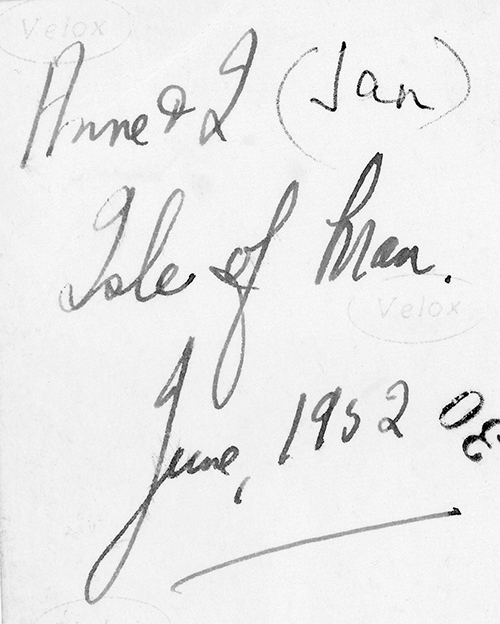 Velox
Anne & I (Jan)
Isle of Man.
Velox
June, 1952
30